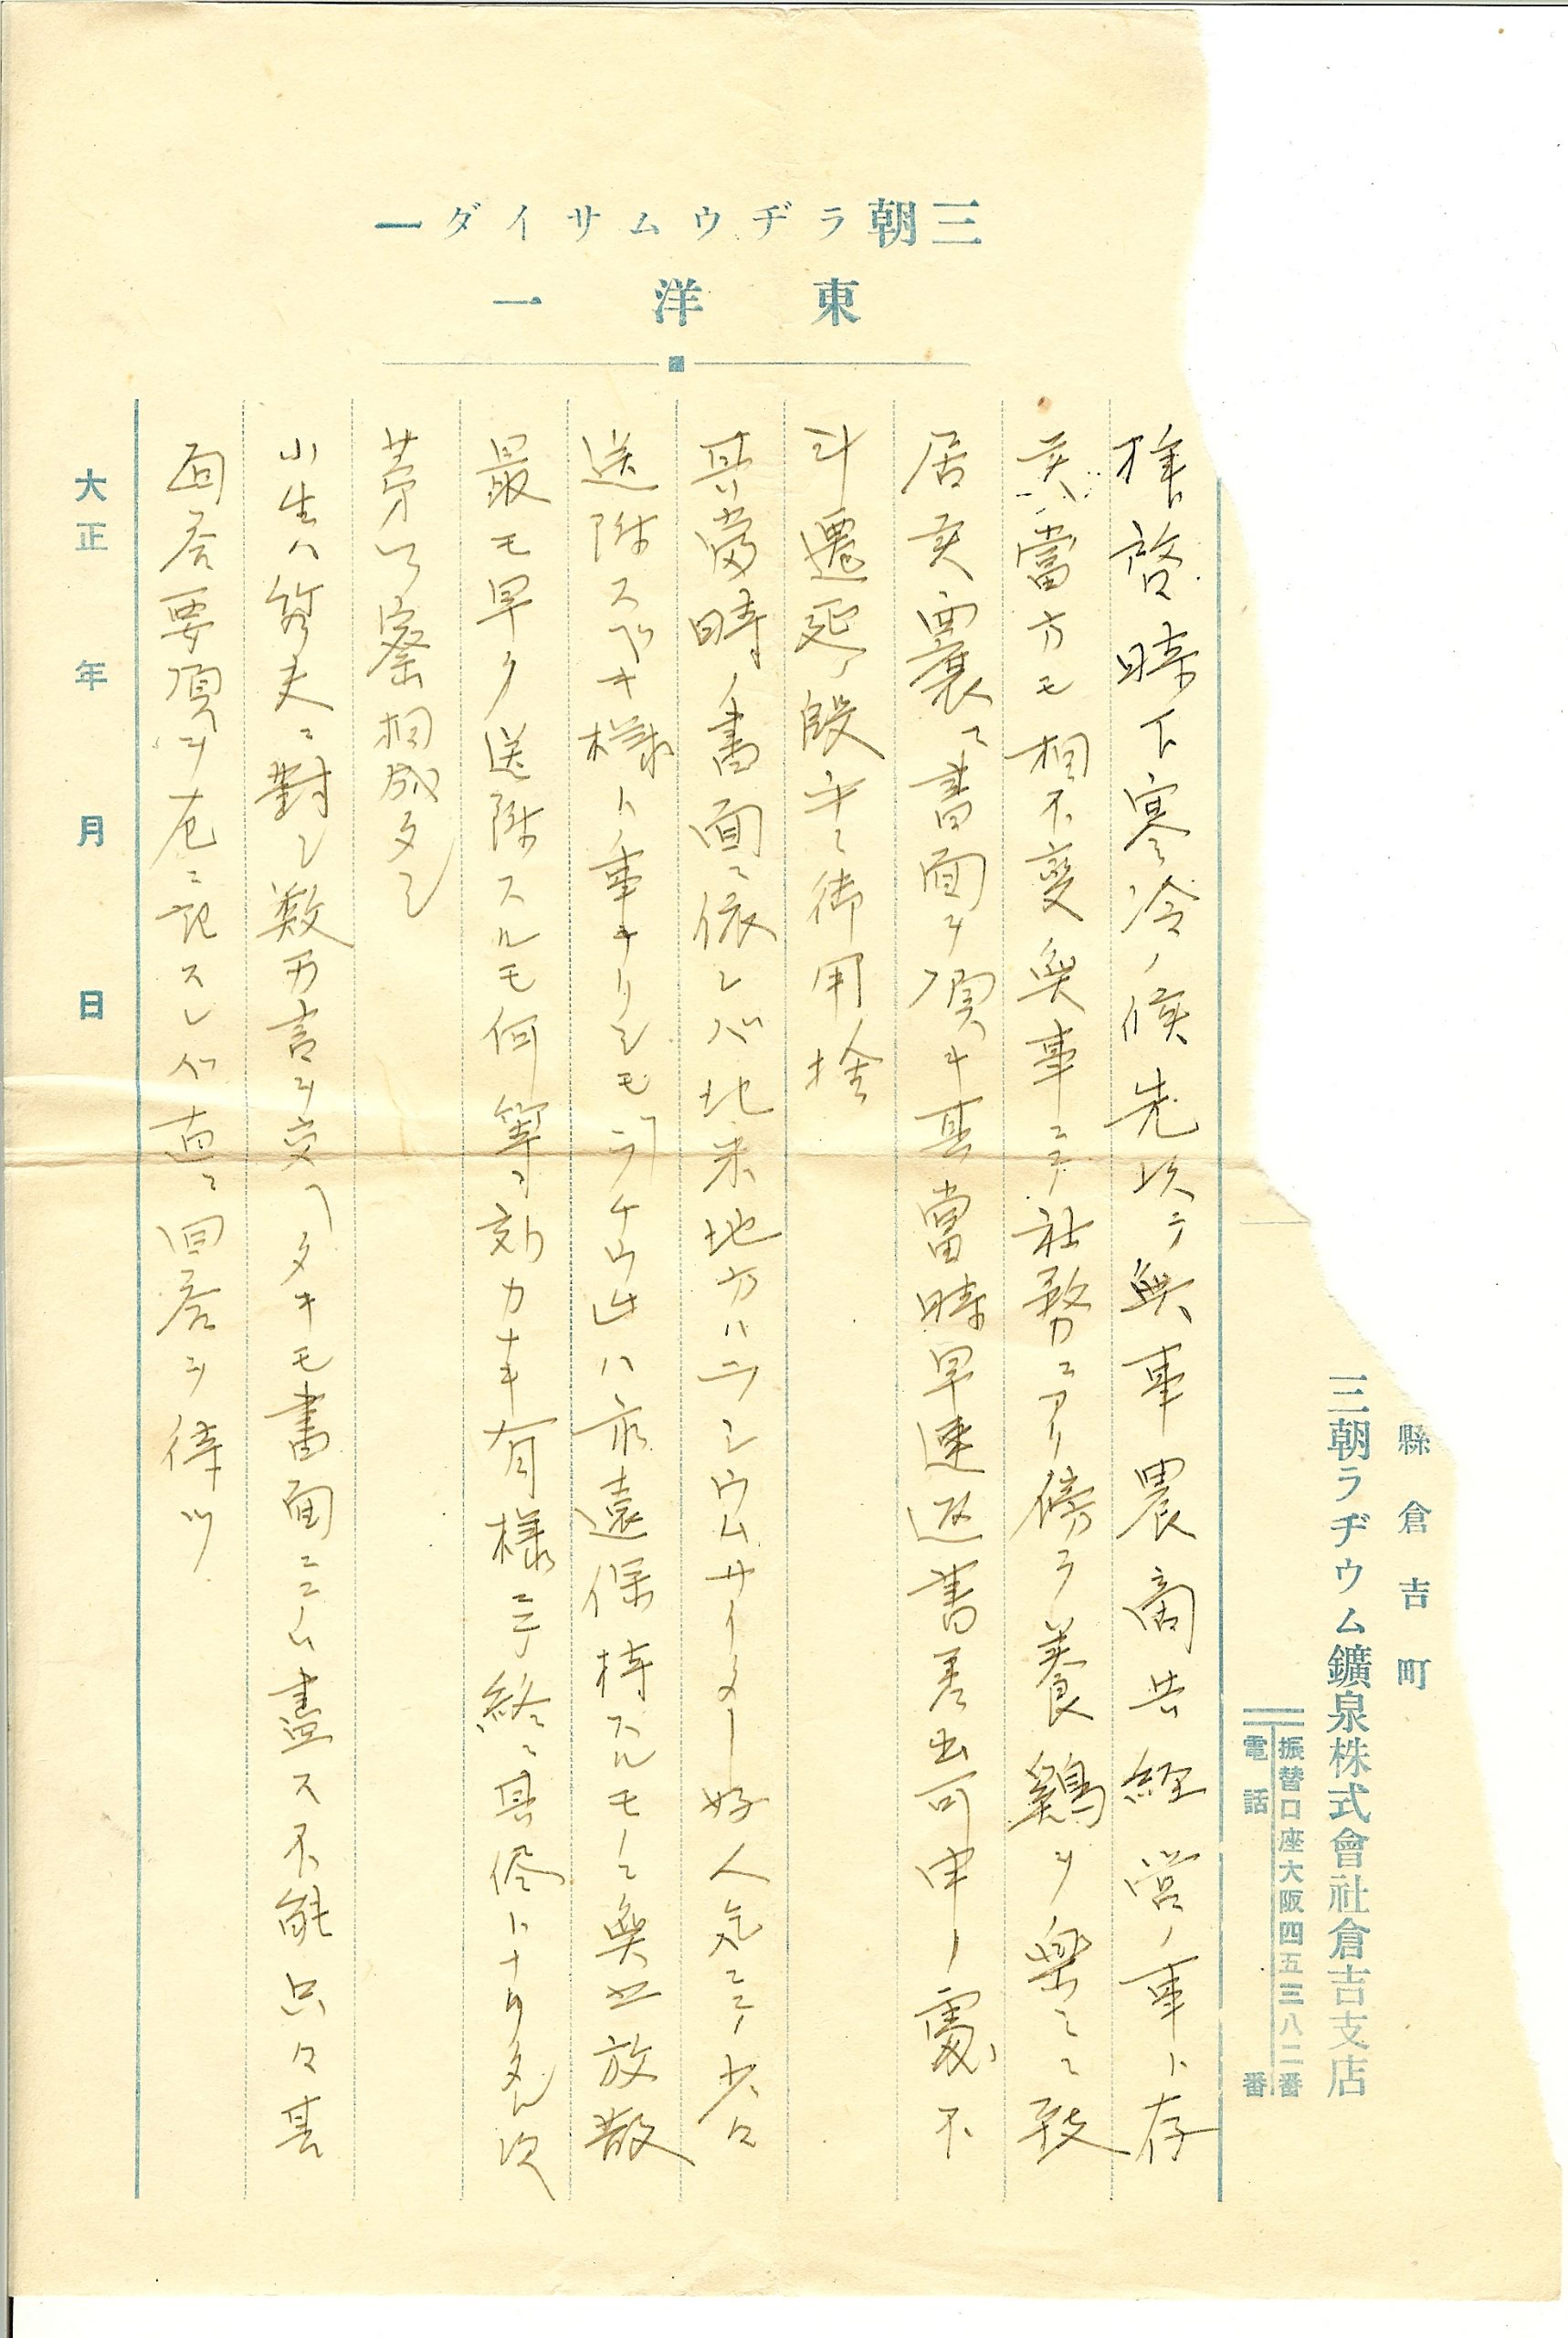 三朝ラヂウムサイダー
東洋一
縣倉吉町
三朝ラヂウム鑛泉株式會社倉吉支店
振替口座大阪四五三八二番
電話 番
拝啓時下寒冷ノ候先以テ無事農商共経営ノ事ト存
候當方モ相不変無事ニテ社務ニアリ傍ラ養鶏ヲ楽シミ致
居候 書面ヲ頂キ其當時早速返書差出可申ノ處不
斗遷延ノ段平ニ御用捨
其當時ノ書面ニ依レバ北米地方ハラシウムサイダー好人気ニテ少々
送附スベキ様トノ事ナリシモラヂウムハ永遠保持スルモノニ無之放散
最モ早ク送附スルモ何等効力ナキ有様ニテ終ニ其侭トナリタル次
第 察相成タシ
小生ハ ニ對シ数万言ヲ交ヘタキモ書面ニテハ盡ス不能只々其
回答要項ヲ左ニ記スレバ直ニ回答ヲ待ツ
大正 年 月 日